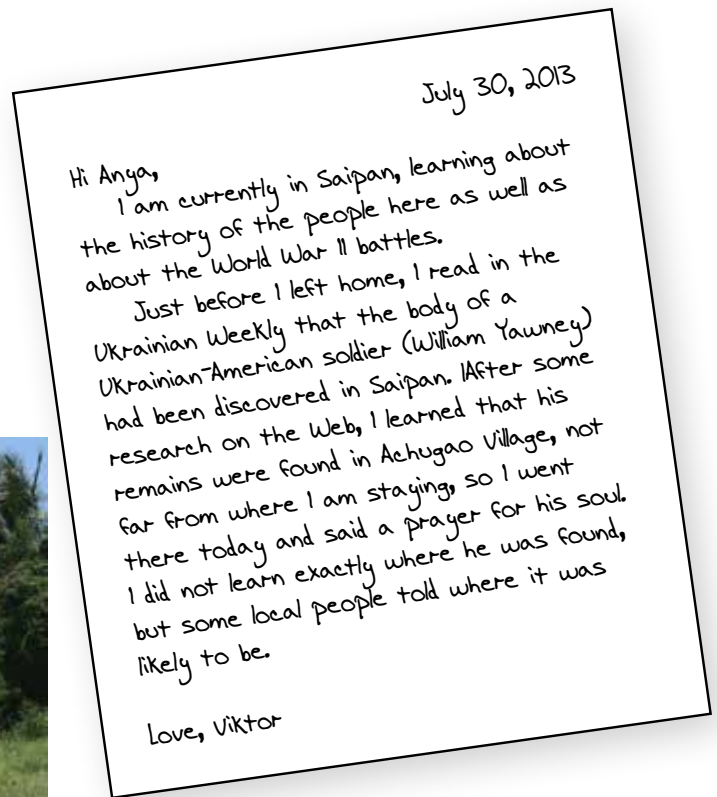 July 30, 2013
Hi Anya,
I am currently in Saipan, learning about
the history of the people here as well as
about the World War II battles.
Just before I left home, I read in the
Ukrainian Weekly that the body of a
Ukrainian-American soldier (William Yawney)
had been discovered in Saipan. IAfter some
research on the Web, I learned that his
remains were found in Achugao Village, not
far from where I am staying, so I went
there today and said a prayer for his soul.
I did not learn exactly where he was found,
but some local people told where it was
likely to be.
Love, Viktor